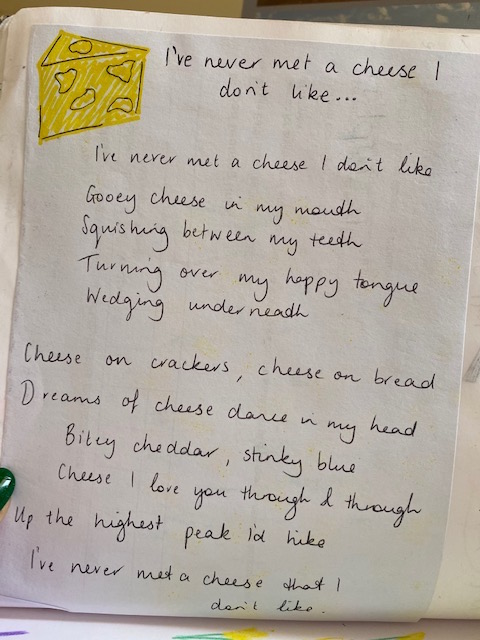 I've never met a cheese I
don't like...
I've never met a cheese I don't like
Gooey cheese in my mouth
Squishing between my teeth
Turning over my happy tongue
Wedging underneath
Cheese on crackers, cheese on bread
Dreams of cheese dance in my head
Bitey cheddar, stinky blue
Cheese I love you through & through
Up the highest peak I'd hike
I've never met a cheese that I
don't like.